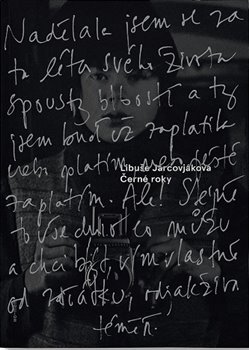 Nadělala jsem se za
ta léta svého života
spousty blbostí a ty
jsem buď už zaplatila
nebo platím nebo ještě
zaplatím. Ale! Stejně
Libuše Jarcovjáková
Černé roky
to všechno co můžu
a chci být, vím vlastně
od začátku, odjakživa
téměř.